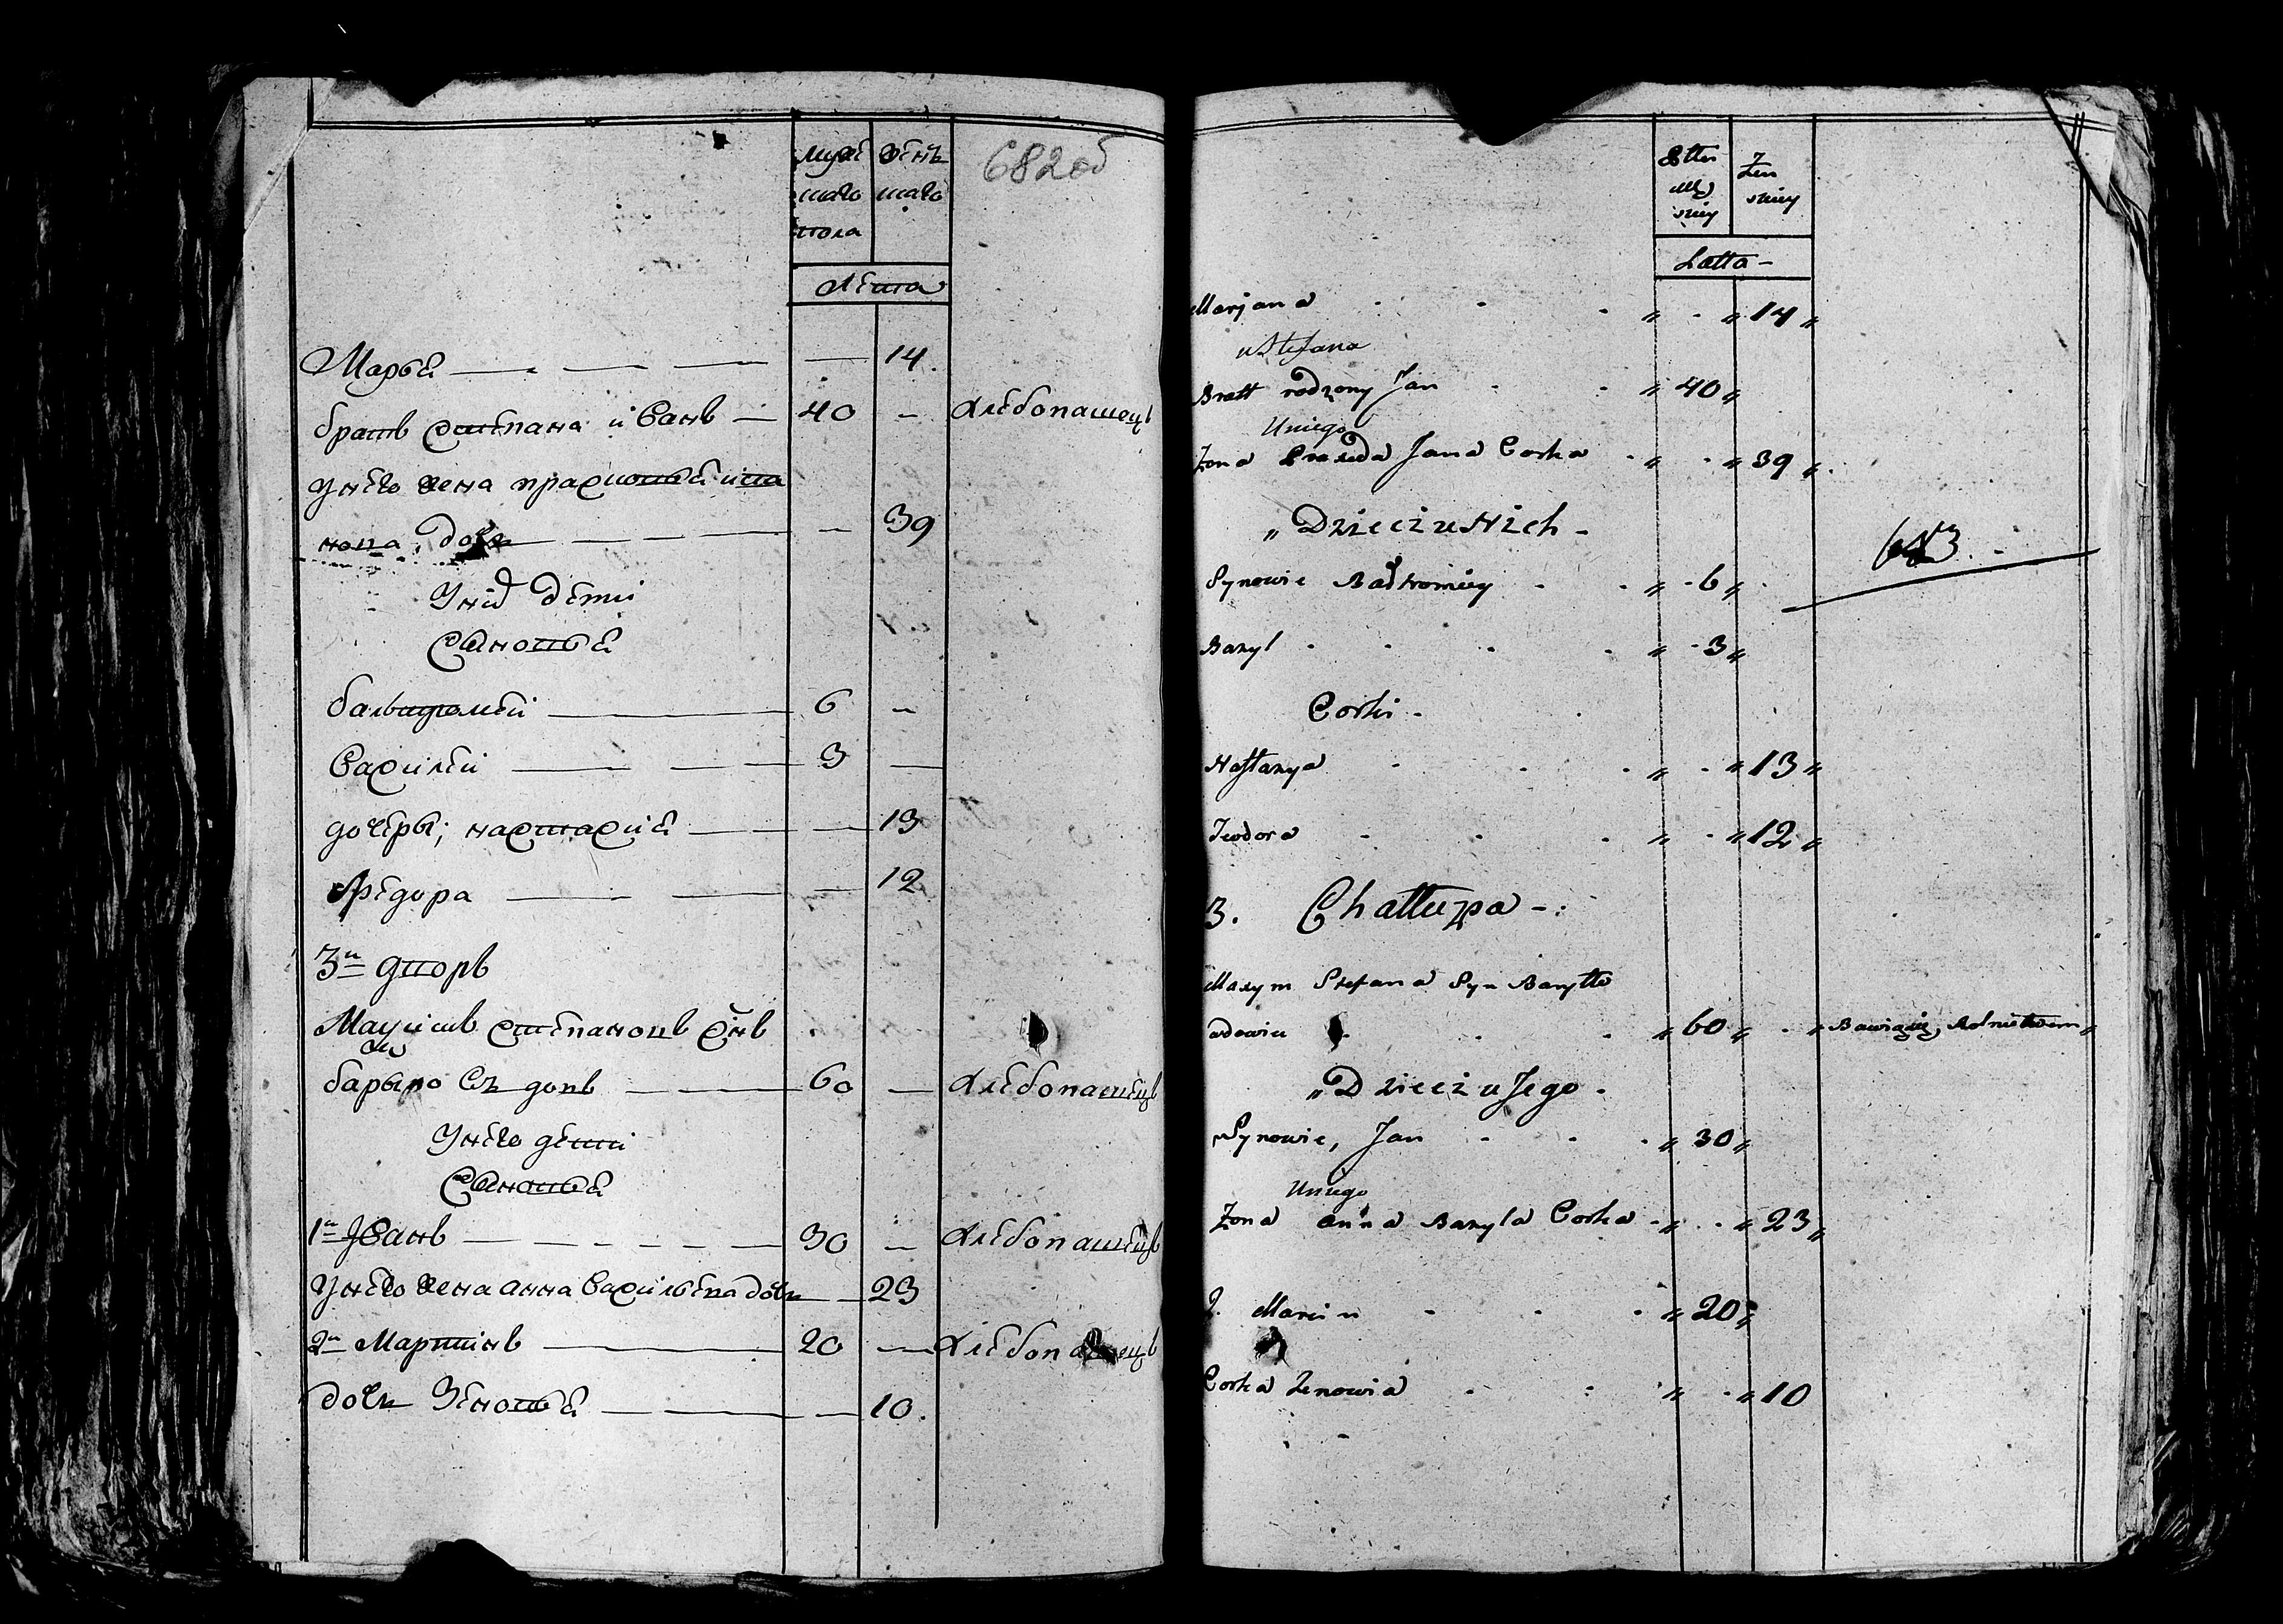 мужс женъ 682об
каго скаго
пола
Лѣта
Марья 14.
братъ Степана иванъ 40 Хлебопашецъ
унего жена праскотья
дочь 39
Унихъ дети
Сыновья
бальтромей 6
василей 3
дочеры; настасия 13
Феодора 12
3й дворъ
Степановъ сынъ
вдовъ 60 Хлебопашецъ
Унего дети
Сыновья
1й Иванъ 30 Хлебопашецъ
Унего жена анна василева дочь 23
2й Мартинъ 20 Хлебопашецъ
дочь Зеновья 10.
Zen
skiey
Latta -
Marjana " " 14 "
u Stefana
Bratt rodzony Jan " 40 "
Uniego
Zona Jana Corka " " 39 "
" Dzieci u Nich -
Synowie " 6 "
Bazyl " 3 "
Corki -
Nastazya " " 13 "
Teodora " " 12 "
3. Chattupa -:
Maxym Stefana Syn Baryllo
wdowiec " 60 " "Bawiący Rolnictwem"
" Dzieci u Jego -
Synowie, Jan " 30 "
Uniego
Zona anna Bazyla Corka " " 23 "
2. Marcin " 20 "
Corka Zenowia " " 10
683.